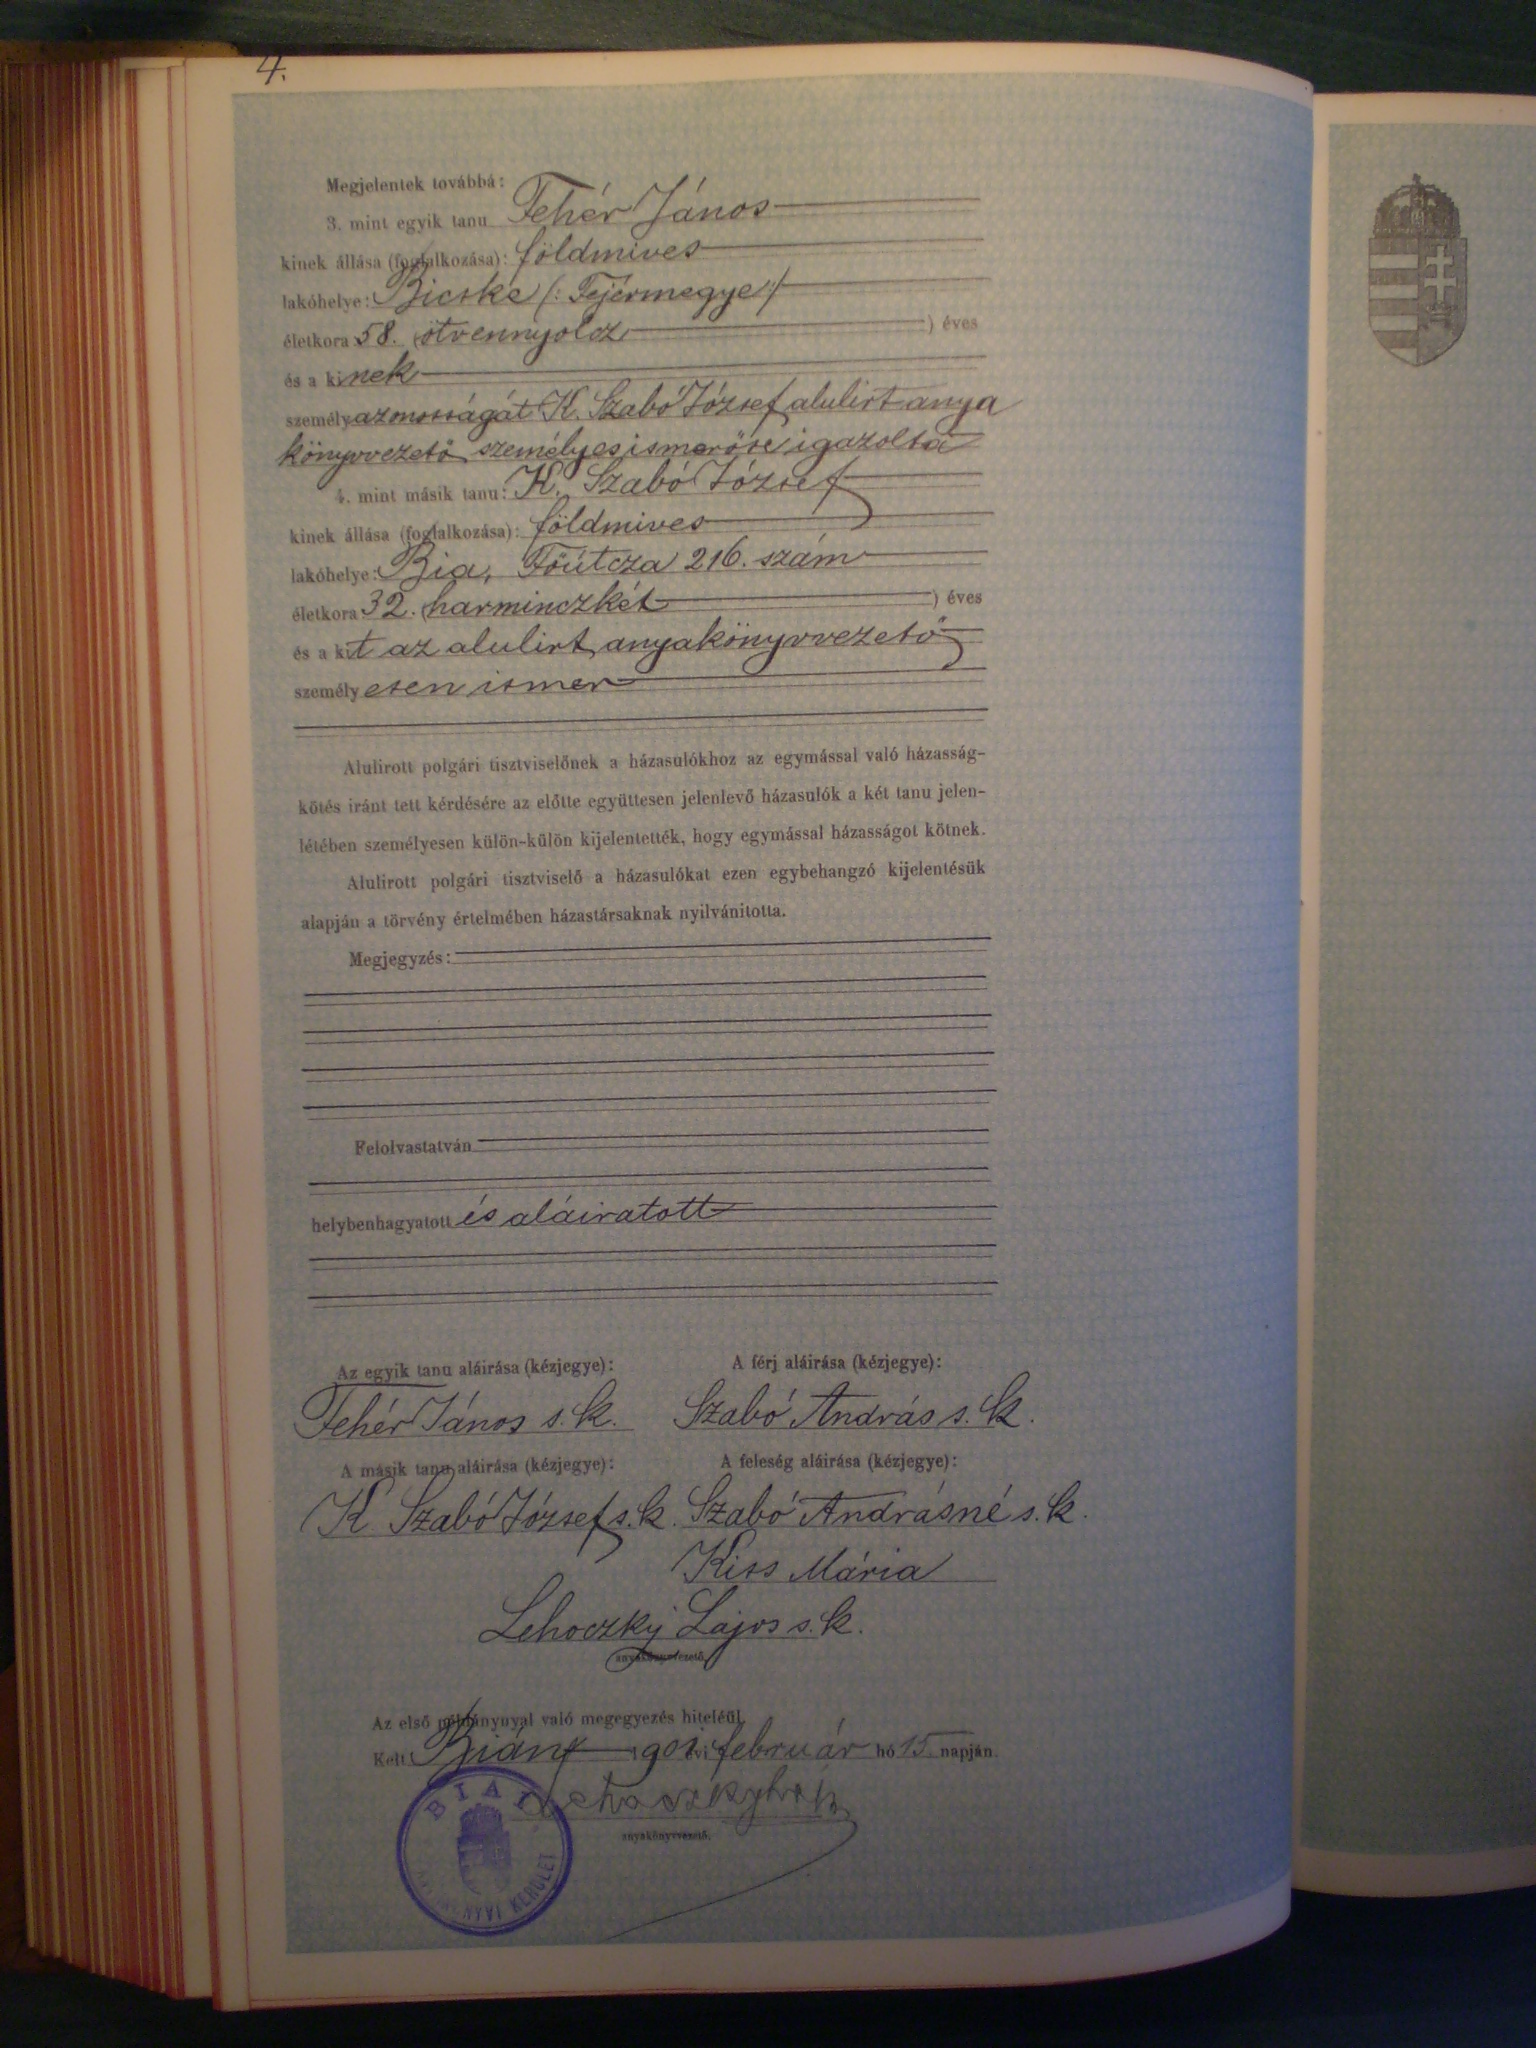 4.
Megjelentek továbbá:
3. mint egyik tanu Fehér János
kinek állása (foglalkozása): földmives
lakóhelye: Bicske (: Fejérmegye :)
életkora 58. (ötvennyolcz ) éves
és a kinek
személyazonosságát K. Szabó József alulirt anya
könyvvezető személyes ismerőse igazolta
4. mint másik tanu: K. Szabó József
kinek állása (foglalkozása): földmives
lakóhelye: Bia, Főútcza 216. szám
életkora 32. (harminczkét ) éves
és a kit az alulirt anyakönyvvezető
személyesen ismer
Alulirott polgári tisztviselőnek a házasulókhoz az egymással való házasság-
kötés iránt tett kérdésére az előtte együttesen jelenlevő házasulók a két tanu jelen-
létében személyesen külön-külön kijelentették, hogy egymással házasságot kötnek.
Alulirott polgári tisztviselő a házasulókat ezen egybehangzó kijelentésük
alapján a törvény értelmében házastársaknak nyilvánitotta.
Megjegyzés:
Felolvastatván
helybenhagyatott és aláiratott
Az egyik tanu aláirása (kézjegye): A férj aláirása (kézjegye):
Fehér János s. k. Szabó András s. k.
A másik tanu aláirása (kézjegye): A feleség aláirása (kézjegye):
K. Szabó József s. k. Szabó Andrásné s. k.
Kiss Mária
Lehoczky Lajos s. k.
anyakönyvvezető
Az első példánynyal való megegyezés hiteléül.
Kelt Bián, 1901 évi február hó 15. napján.
anyakönyvvezető.
BIAI
KERÜLET